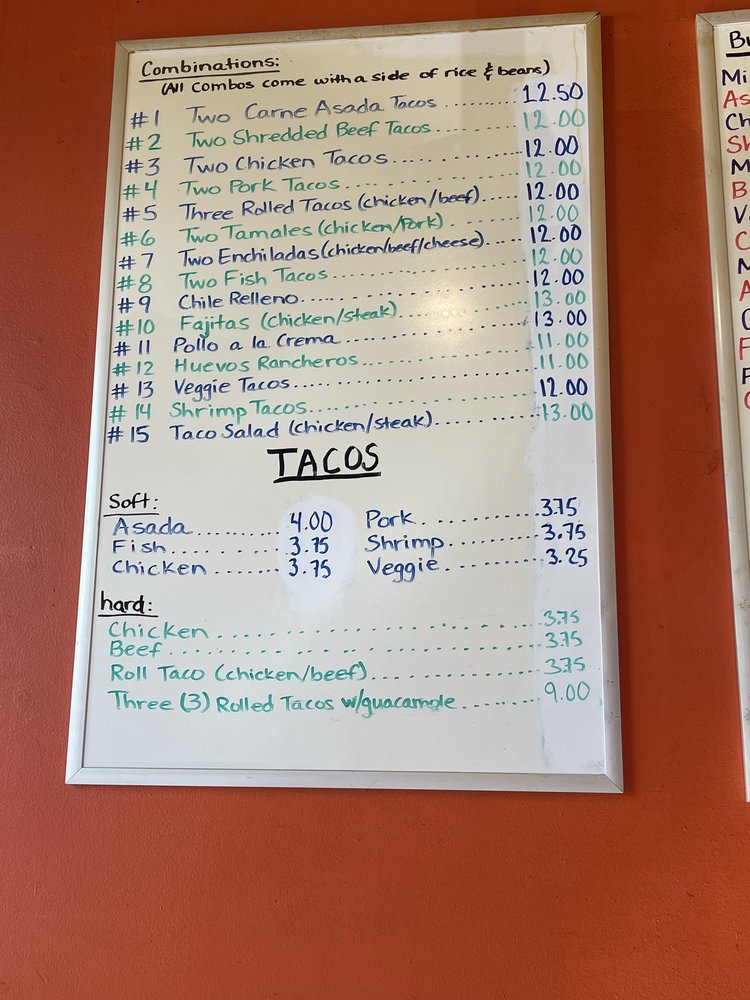 Combinations:
(All Combos come with a side of rice & beans)
#1 Two Carne Asada Tacos ........ 12.50
#2 Two Shredded Beef Tacos ........ 12.00
#3 Two Chicken Tacos ........ 12.00
#4 Two Pork Tacos ........ 12.00
#5 Three Rolled Tacos (chicken/beef) ..... 12.00
#6 Two Tamales (chicken/Pork) ........ 12.00
#7 Two Enchiladas (chicken/beef/cheese) ..... 12.00
#8 Two Fish Tacos ........ 12.00
#9 Chile Relleno ........ 12.00
#10 Fajitas (chicken/steak) ........ 13.00
#11 Pollo a la Crema ........ 13.00
#12 Huevos Rancheros ........ 11.00
#13 Veggie Tacos ........ 11.00
#14 Shrimp Tacos ........ 12.00
#15 Taco Salad (chicken/steak) ........ 13.00
TACOS
Soft:
Asada ........ 4.00 Pork ........ 3.75
Fish ........ 3.75 Shrimp ........ 3.75
Chicken ........ 3.75 Veggie ........ 3.25
hard:
Chicken ........ 3.75
Beef ........ 3.75
Roll Taco (chicken/beef) ........ 3.75
Three (3) Rolled Tacos w/guacamole ........ 9.00